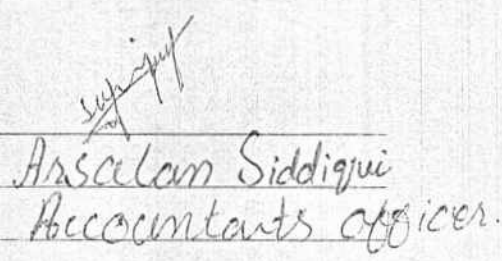 Arsalan Siddiqui
Accountants officer.